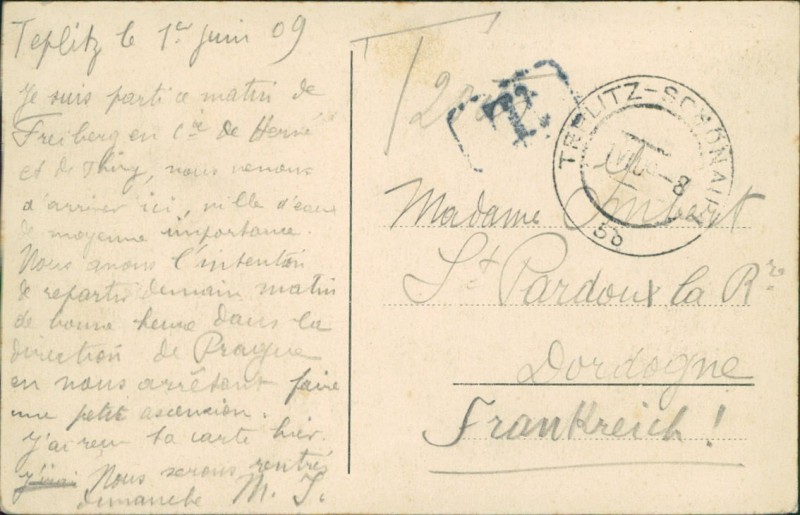 Teplitz le 1er juin 09
Je suis parti ce matin de
Freiberg en Cie de Hervé
et de Thiry, nous venons
d'arriver ici, ville d'eaux
de moyenne importance.
Nous avons l'intention
de repartir demain matin
de bonne heure dans la
direction de Prague
en nous arrêtant faire
une petite ascension.
J'ai reçu ta carte hier.
Nous serons rentrés
dimanche M. J.
T
T
TEPLITZ-SCHÖNAU
5b
Madame Imbert
St Pardoux la Rre
Dordogne
Frankreich!